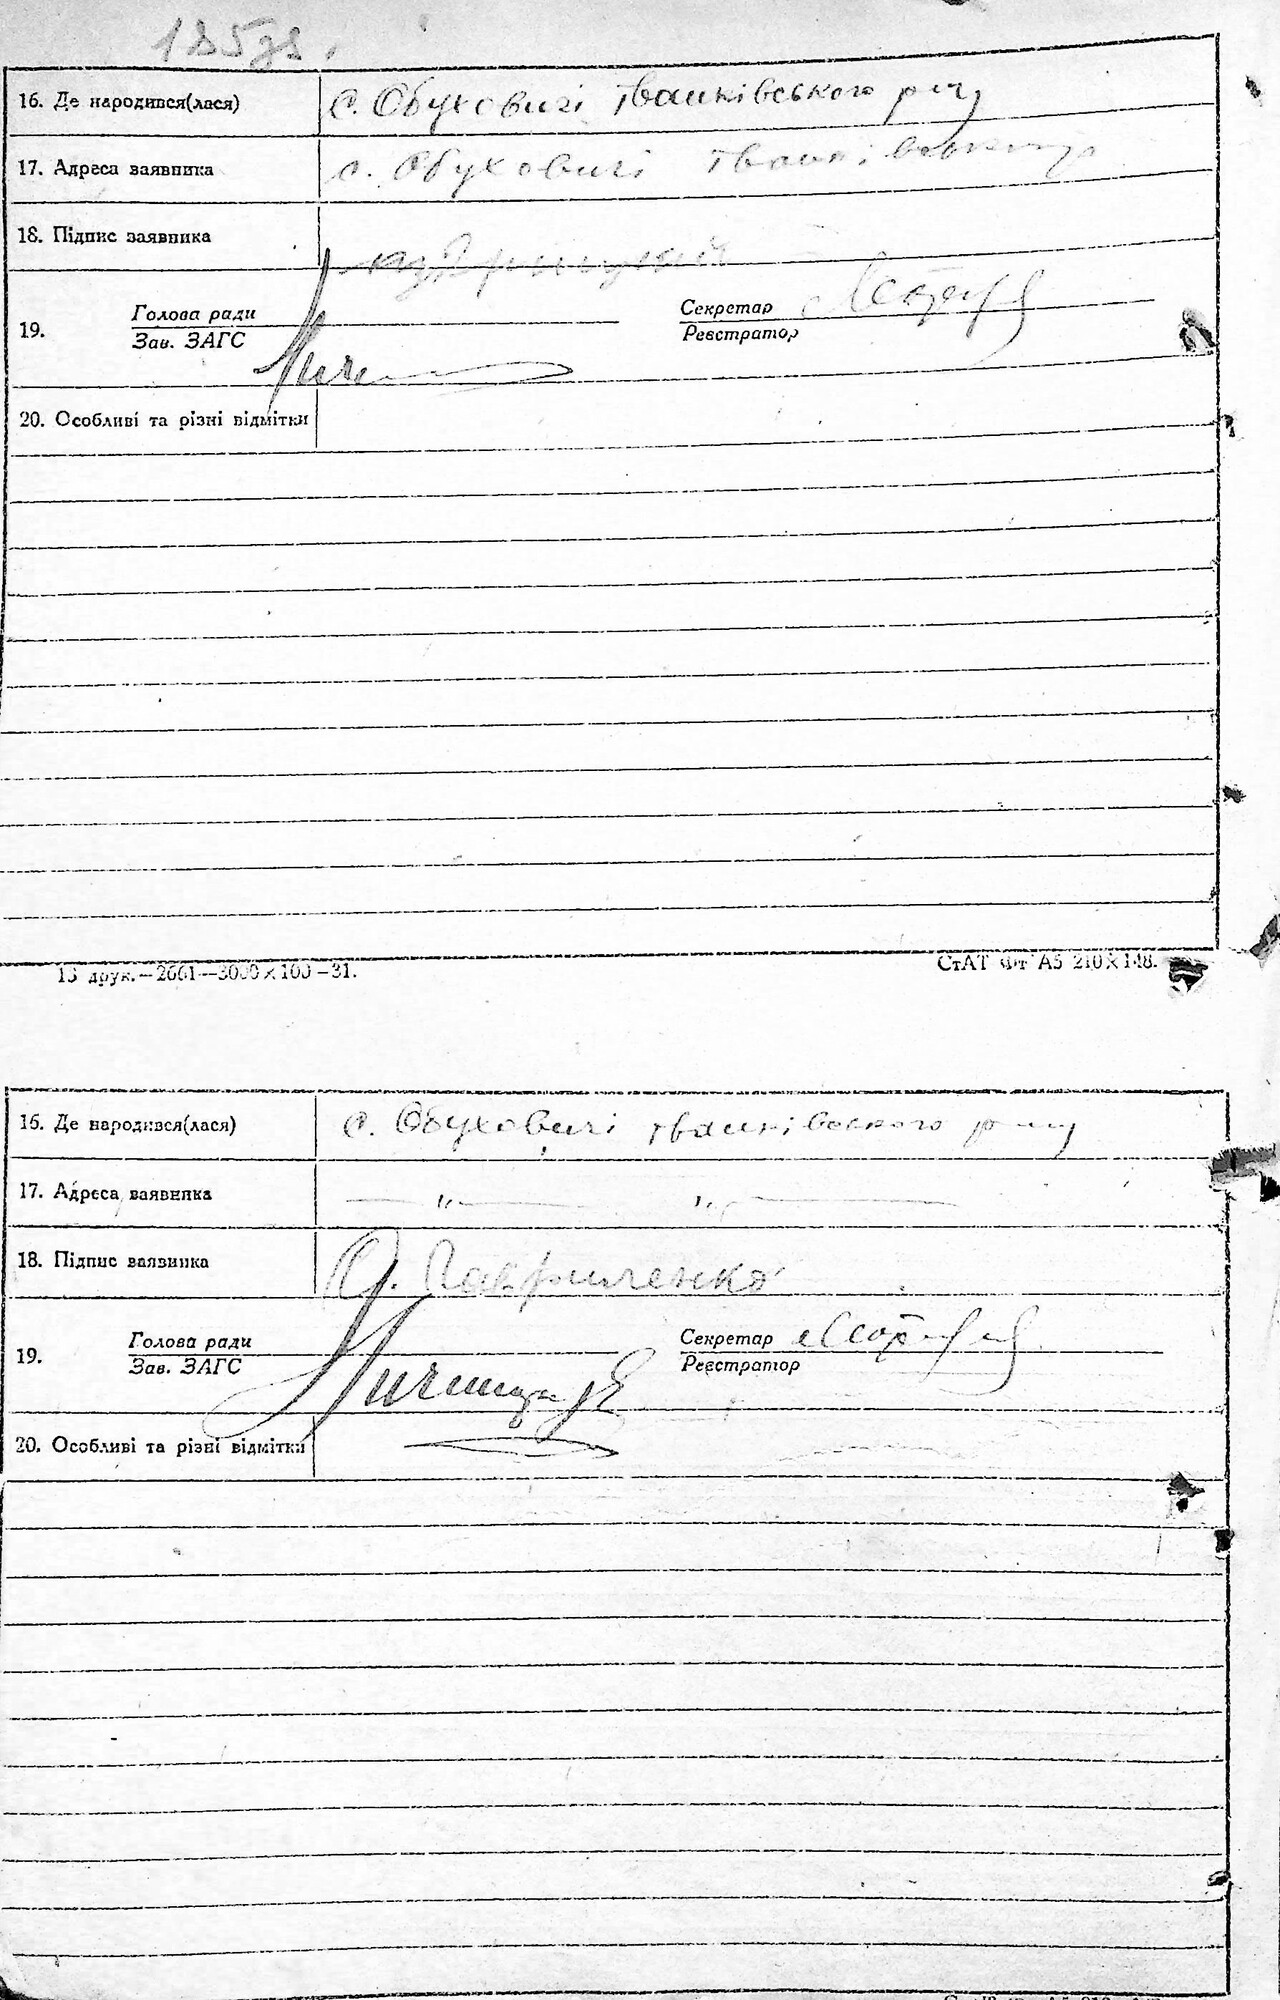 185зв.
16. Де народився(лася) с. Обуховичі Іванківського р-ну
17. Адреса заявника с. Обуховичі
18. Підпис заявника
19. Голова ради Секретар
Зав. ЗАГС Реєстратор
20. Особливі та різні відмітки
13 друк.—2661—3000×100—31.
СтАТ Фт А5 210×148.
16. Де народився(лася) с. Обуховичі Іванківського р-ну
17. Адреса заявника — „ — „ —
18. Підпис заявника О. Гавриленко
19. Голова ради Секретар
Зав. ЗАГС Реєстратор
20. Особливі та різні відмітки